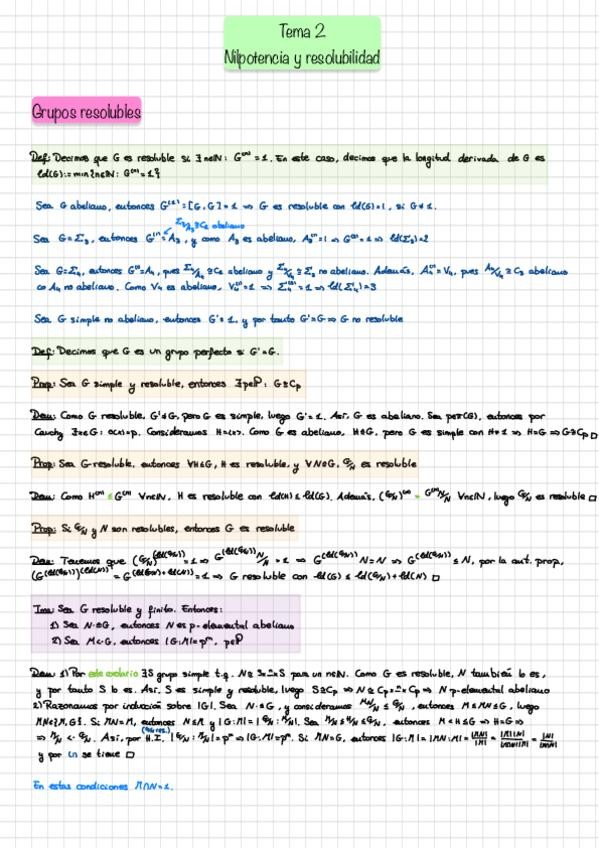 Tema 2
Nilpotencia y resolubilidad
Grupos resolubles
Def: Decimos que G es resoluble si ∃n∈ℕ: G⁽ⁿ⁾=1. En este caso, decimos que la longitud derivada de G es
ld(G):=min{n∈ℕ: G⁽ⁿ⁾=1}
Sea G abeliano, entonces G⁽¹⁾=[G,G]=1 ⇒ G es resoluble con ld(G)=1, si G≠1.
Σ₃/A₃≅C₂ abeliano
Sea G=Σ₃, entonces G⁽¹⁾=A₃, y como A₃ es abeliano, A₃⁽¹⁾=1 ⇒ G⁽²⁾=1 ⇒ ld(Σ₃)=2
Sea G=Σ₄, entonces G⁽¹⁾=A₄, pues Σ₄/A₄≅C₂ abeliano y Σ₄/V₄≅Σ₃ no abeliano. Además, A₄⁽¹⁾=V₄, pues A₄/V₄≅C₃ abeliano
A₄ no abeliano. Como V₄ es abeliano, V₄⁽¹⁾=1 ⇒ Σ₄⁽³⁾=1 ⇒ ld(Σ₄)=3
Sea G simple no abeliano, entonces G'≠1, y por tanto G'=G ⇒ G no resoluble
Def: Decimos que G es un grupo perfecto si G'=G.
Prop: Sea G simple y resoluble, entonces ∃p∈P: G≅Cp
Dem: Como G resoluble, G'≠G, pero G es simple, luego G'=1. Así, G es abeliano. Sea p∈π(G), entonces por
Cauchy ∃x∈G: o(x)=p. Consideramos H=<x>. Como G es abeliano, H⊴G, pero G es simple con H≠1 ⇒ H=G ⇒ G≅Cp □
Prop: Sea G resoluble, entonces ∀H≤G, H es resoluble, y ∀N⊴G, G/N es resoluble
Dem: Como H⁽ⁿ⁾ ≤ G⁽ⁿ⁾ ∀n∈ℕ, H es resoluble con ld(H)≤ld(G). Además, (G/N)⁽ⁿ⁾ = G⁽ⁿ⁾N/N ∀n∈ℕ, luego G/N es resoluble □
Prop: Si G/N y N son resolubles, entonces G es resoluble
Dem: Tenemos que (G/N)^(ld(G/N))=1 ⇒ G^(ld(G/N))N/N = 1 ⇒ G^(ld(G/N))N=N ⇒ G^(ld(G/N))≤N, por la ant. prop,
(G^(ld(G/N)))^(ld(N)) = G^(ld(G/N)+ld(N))=1 ⇒ G resoluble con ld(G)≤ld(G/N)+ld(N) □
Tma: Sea G resoluble y finito. Entonces:
1) Sea N·⊴G, entonces N es p-elemental abeliano
2) Sea M<·G, entonces |G:M|=pⁿ, p∈P
Dem: 1) Por este corolario ∃S grupo simple t.q. N≅S×...×S para un n∈ℕ. Como G es resoluble, N también lo es,
y por tanto S lo es. Así, S es simple y resoluble, luego S≅Cp ⇒ N≅Cp×...×Cp ⇒ N p-elemental abeliano
2) Razonamos por inducción sobre |G|. Sea N·⊴G, y consideramos MN/N≤G/N, entonces M≤MN≤G, luego
MN∈{M,G}. Si MN=M, entonces N≤M y |G:M|=|G/N:M/N|. Sea M/N≤H/N≤G/N, entonces M<H≤G ⇒ H=G ⇒
(G/N res.)
⇒ M/N <· G/N. Así, por H.I. |G/N:M/N|=pⁿ ⇒ |G:M|=pⁿ. Si MN=G, entonces |G:M|=|MN:M|=|MN|/|M|=|M||N|/|M∩N||M|=|N|/|M∩N|
y por 1) se tiene □
En estas condiciones M∩N=1.